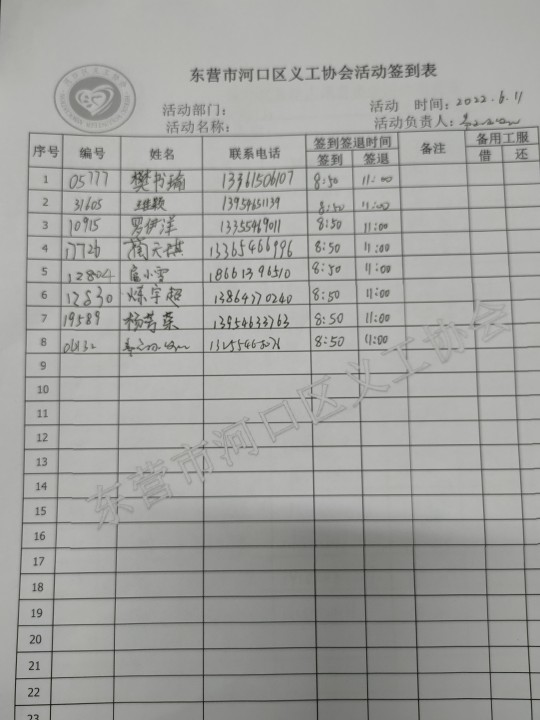 东营市河口区义工协会活动签到表
活动部门： 活动 时间：2022.6.11
活动名称： 活动负责人：
序号 编号 姓名 联系电话 签到签退时间 备注 备用工服
签到 签退 借 还
1 05777 樊书瑜 13361506107 8:50 11:00
2 31605 13954651139 8:50 11:00
3 10915 罗伊洋 13355469011 8:50 11:00
4 17726 蔺天祺 13365466996 8:50 11:00
5 12804 扈小雪 18661396510 8:50 11:00
6 12830 宇超 13864770240 8:50 11:00
7 19589 杨芳菜 13954633763 8:50 11:00
8 8:50 11:00
9
10
11
12
13
14
15
16
17
18
19
20
21
22
23
东营市河口区义工协会